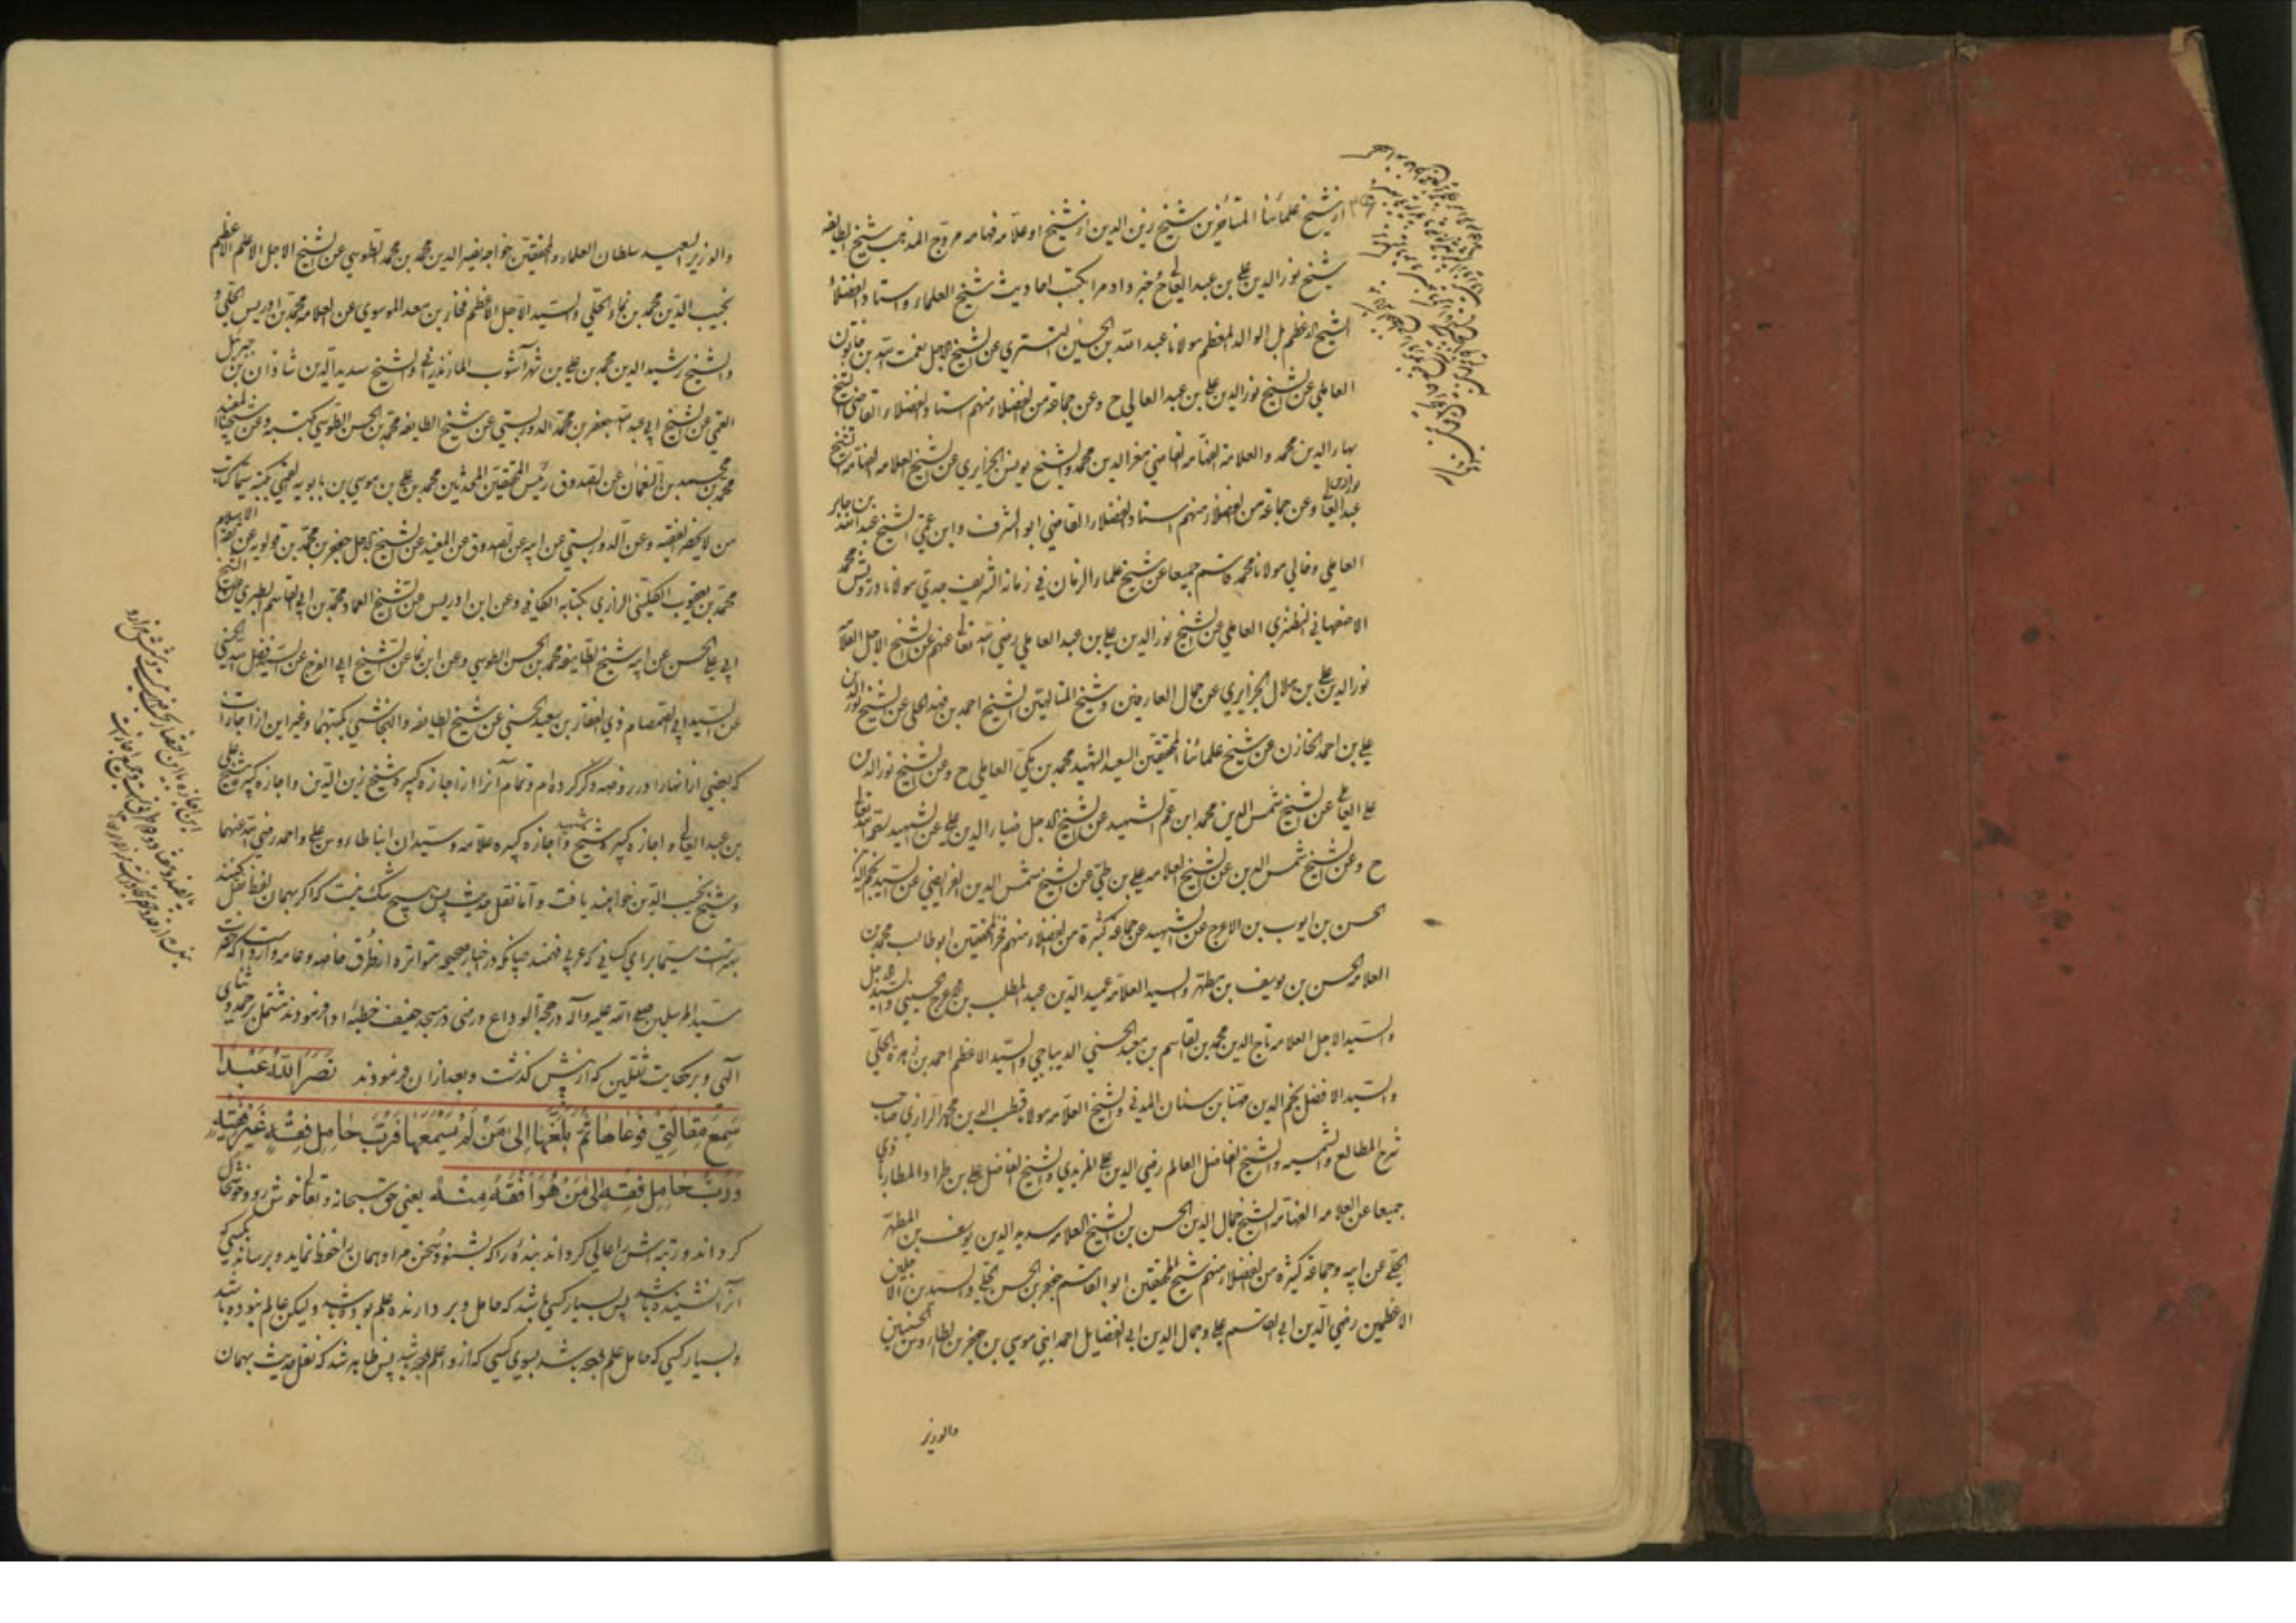 از شیخ علمائنا المتأخرین شیخ زین الدین از شیخ او علامه فهامه مروج المذهب شیخ الطایفه
شیخ نور الدین علی بن عبد العالی ح خبر داد مرا بکتب احادیث شیخ العلماء و استاد الفضلاء
الشیخ الاعظم بل الوالد المعظم مولانا عبد الله بن الحسین التستری عن الشیخ الاجل نعمت الله بن خاتون
العاملی عن الشیخ نور الدین علی بن عبد العالی ح و عن جماعة من الفضلاء منهم استاد الفضلاء القاضی الشیخ
بهاء الدین محمد و العلامة الفهامة القاضی معز الدین محمد و الشیخ یونس الجزایری عن الشیخ العلامة الفهامة الشیخ
عبد العالی و عن جماعة من الفضلاء منهم استاد الفضلاء القاضی ابو الشرف و ابن عمتی الشیخ عبد الله بن جابر
العاملی و خالی مولانا محمد قاسم جمیعا عن شیخ علماء الزمان فی زمانه الشریف جدی مولانا درویش محمد
الاصفهانی النطنزی العاملی عن الشیخ نور الدین علی بن عبد العالی رضی الله تعالی عنهم عن الشیخ الاجل العلامة
نور الدین علی بن هلال الجزایری عن جمال العارفین و شیخ المتالهین الشیخ احمد بن فهد الحلی عن الشیخ نور الدین
علی بن احمد الخازن عن شیخ علمائنا المحققین السعید الشهید محمد بن مکی العاملی ح و عن الشیخ نور الدین
علی العالی عن الشیخ شمس الدین محمد ابن عم الشهید عن الشیخ الاجل ضیاء الدین علی عن الشهید
ح و عن الشیخ شمس الدین عن الشیخ العلامه علی بن طی عن الشیخ شمس الدین العریضی عن السید بدر الدین
الحسن بن ایوب بن الاعرج عن الشهید عن جماعة کثیرة من الفضلاء منهم فخر المحققین ابو طالب محمد بن
العلامه الحسن بن یوسف بن مطهر و السید العلامة عمید الدین عبد المطلب بن الاعرج الحسینی
و السید الاجل العلامه تاج الدین محمد بن القاسم بن معیه الحسنی الدیباجی و السید الاعظم احمد بن زهرة الحلبی
و السید الافضل نجم الدین مهنا بن سنان المدنی و الشیخ العلامه مولانا قطب الدین محمد الرازی صاحب
شرح المطالع و الشمسیه و الشیخ الفاضل العالم رضی الدین علی المزیدی و الشیخ الفاضل علی بن طراد المطارباذی
جمیعا عن العلامه الفهامه الشیخ جمال الدین الحسن بن الشیخ العلامه سدید الدین یوسف بن المطهر
الحلی عن ابیه و جماعة کثیرة من الفضلاء منهم شیخ المحققین ابو القاسم جعفر بن الحسن الحلی و السیدین الاجلین
الاعظمین رضی الدین ابی القاسم علی و جمال الدین ابی الفضایل احمد ابنی موسی بن جعفر بن الطاووس الحسنیین
والوزیر
والوزیر السعید سلطان العلماء و المحققین خواجه نصیر الدین محمد بن محمد الطوسی عن الشیخ الاجل الاعلم الاعظم
نجیب الدین محمد بن نما الحلی و السید الاجل الاعظم فخار بن معد الموسوی عن العلامه محمد بن ادریس الحلی
و الشیخ رشید الدین محمد بن علی بن شهرآشوب المازندرانی و الشیخ سدید الدین شاذان بن جبرئیل
القمی عن الشیخ ابی عبد الله جعفر بن محمد الدوریستی عن شیخ الطایفه محمد بن الحسن الطوسی بکتبه و عن شیخنا المفید
محمد بن محمد بن النعمان عن الصدوق رئیس المحققین المحدثین محمد بن علی بن موسی بن بابویه القمی بکتبه سیما کتاب
من لا یحضر الفقیه و عن الدوریستی عن ابیه عن الصدوق عن المفید عن الشیخ الاجل جعفر بن محمد بن قولویه عن ثقة الاسلام
محمد بن یعقوب الکلینی الرازی بکتابه الکافی و عن ابن ادریس عن الشیخ العماد محمد بن ابی القاسم الطبری عن الشیخ
ابی علی الحسن عن ابیه شیخ الطایفه محمد بن الحسن الطوسی و عن ابن نما عن الشیخ ابی الفرج عن السید فضل الله الحسنی
عن السید ابی الصمصام ذی الفقار بن معبد الحسنی عن شیخ الطایفه و النجاشی بکتبهما و غیر این از اجازات
که بعضی از آنها را در روضه ذکر کرده ام و تمام آنرا از اجازه کبیره شیخ زین الدین و اجازه کبیره شیخ علی
بن عبد العالی و اجازه کبیره شیخ شهید و اجازه کبیره علامه و سیدان ابنا طاوس علی و احمد رضی الله عنهما
و شیخ نجیب الدین خواهند یافت و اما نقل حدیث پس هیچ شک نیست که اگر بهمان لفظ نقل کنند
بهتر است سیما برای کسانی که عربی فهمند چنانکه در اخبار صحیحه متواتره از طرق خاصه و عامه وارد است که حضرت
سید المرسلین صلی الله علیه و آله در حجة الوداع در منی در مسجد خیف خطبهٔ ادا فرمودند مشتمل بر حمد و ثنای
الهی و بر حکایت ثقلین که از پیش گذشت و بعد از آن فرمودند نَضَرَ اللّٰهُ عَبْدًا
سَمِعَ مَقَالَتِی فَوَعَاهَا ثُمَّ بَلَّغَهَا اِلیٰ مَنْ لَمْ یَسْمَعْهَا فَرُبَّ حَامِلِ فِقْهٍ غَیْرُ فَقِیْهٍ
وَرُبَّ حَامِلِ فِقْهٍ اِلیٰ مَنْ هُوَ اَفْقَهُ مِنْهُ یعنی حق سبحانه و تعالی خوش رو و خوشحال
کرداند و رتبه اش را عالی کرداند بندهٔ را که بشنود سخن مرا و همان را حفظ نماید و برساند بکسی که
آنرا نشنیده باشد پس بسیار کسی باشد که حامل و بردارنده علم بوده باشد ولیکن عالم نبوده باشد
و بسیار کسی که حامل علم بوده باشد بسوی کسی که از او اعلم بوده باشد پس ظاهر شد که نقل حدیث بهمان